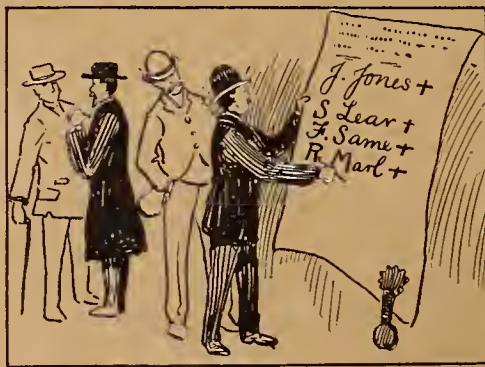 J. Jones +
S Lear +
F. Same +
R. Marl +